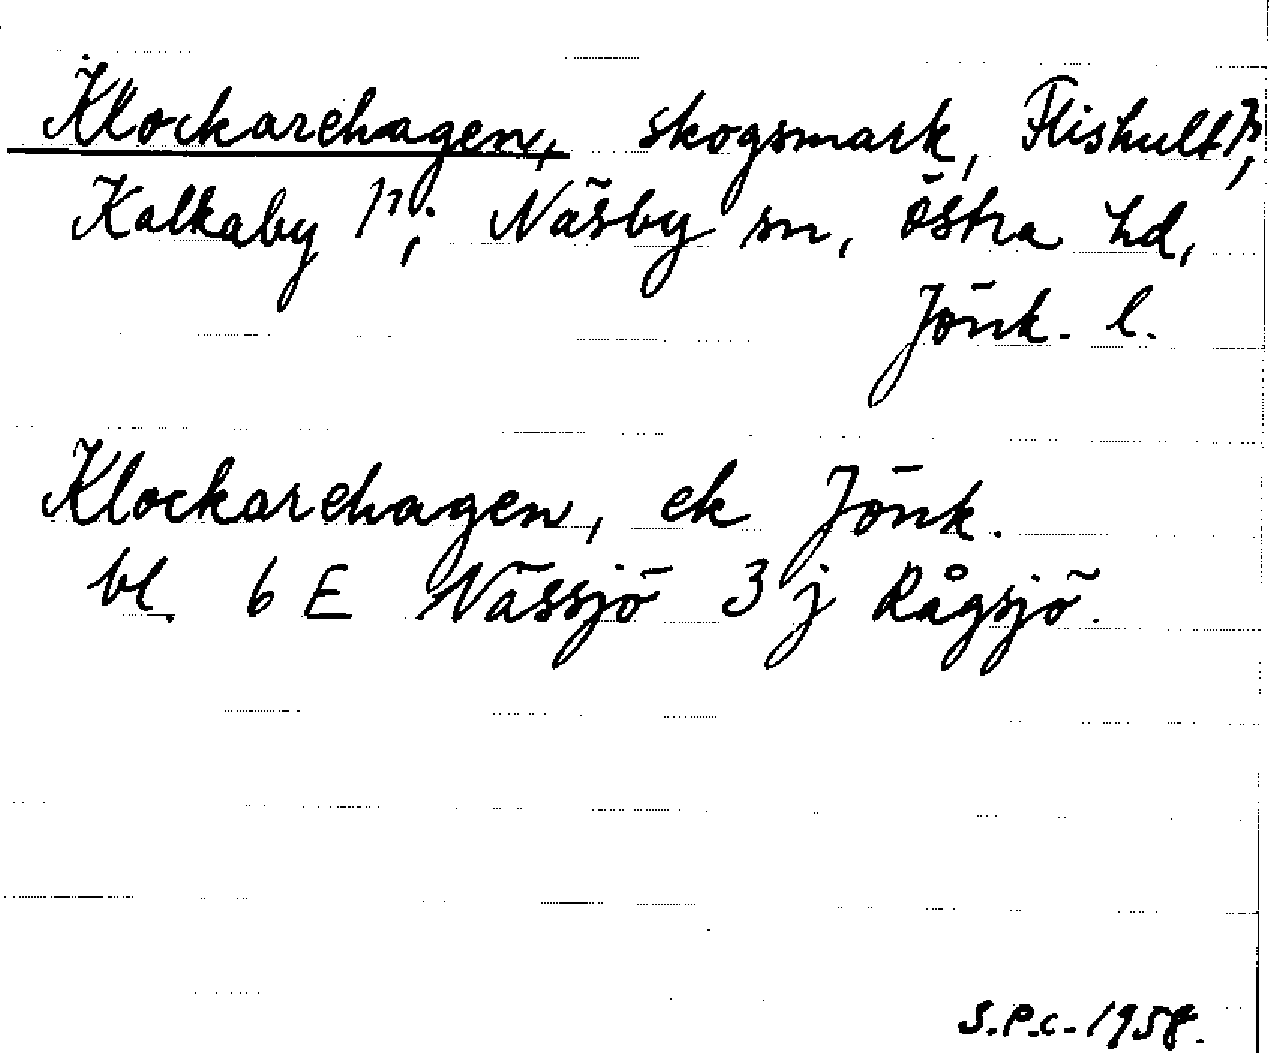 Klockarehagen, skogsmark, Flishult
Kalkaby 1⁷; Näsby sn, Östra hd,
Jönk. l.
Klockarehagen, ek Jönk.
bl. 6 E Nässjö 3 j Rågsjö.
S.P.C. 1958.